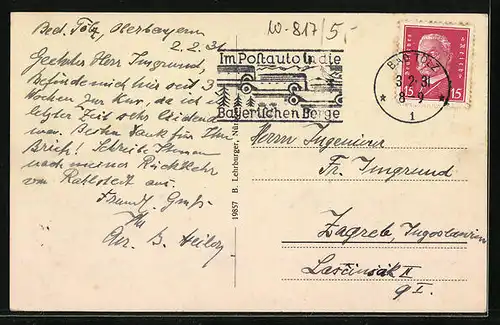 Bad Tölz, Oberbayern
2.2.31
Geehrter Herr Imgrund,
Befinde mich hier seit 3
Wochen zur Kur, da ich in
letzter Zeit sehr leidend
war. Besten Dank für Ihr
Brief! Schreibe Ihnen
nach meiner Rückkehr
von aus.
Freundl. Gruß
Ihr
B.
W-817/5,-
Im Postauto in die
Bayerischen Berge
BAD TÖLZ
3.2.31
8-9
1
15 15
19857 B. Lehrburger, Nür
Herrn Ingenieur
Fr. Imgrund
Zagreb, Jugoslavien
Lašćinska II
9 I.